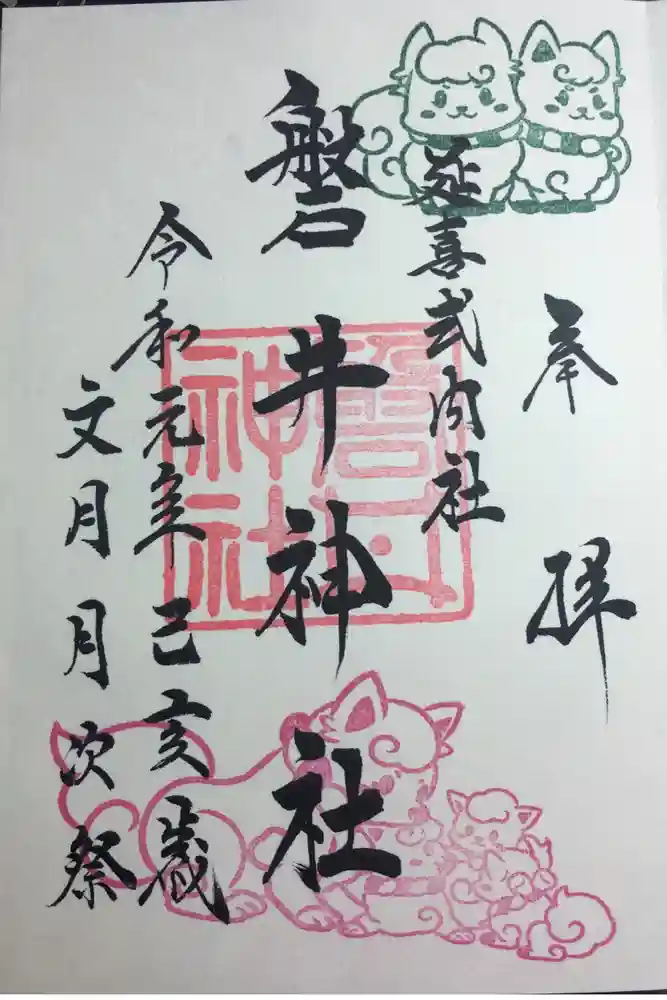 奉拝
延喜式内社
磐井神社
令和元年己亥歳
文月月次祭
磐井神社